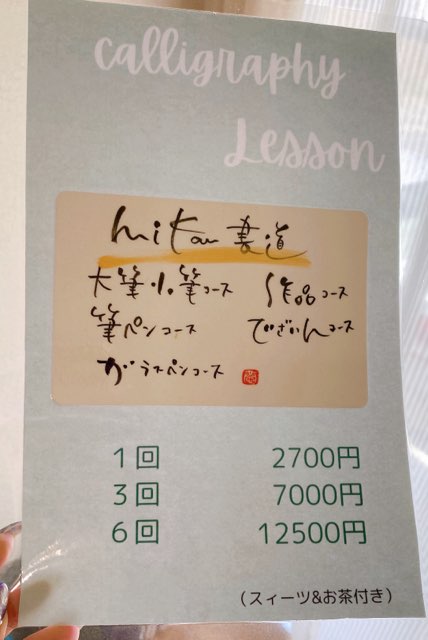 calligraphy
Lesson
mitau 書道
大筆小筆コース
作品コース
筆ペンコース
でざいんコース
ガラスペンコース
1回 2700円
3回 7000円
6回 12500円
(スィーツ&お茶付き)